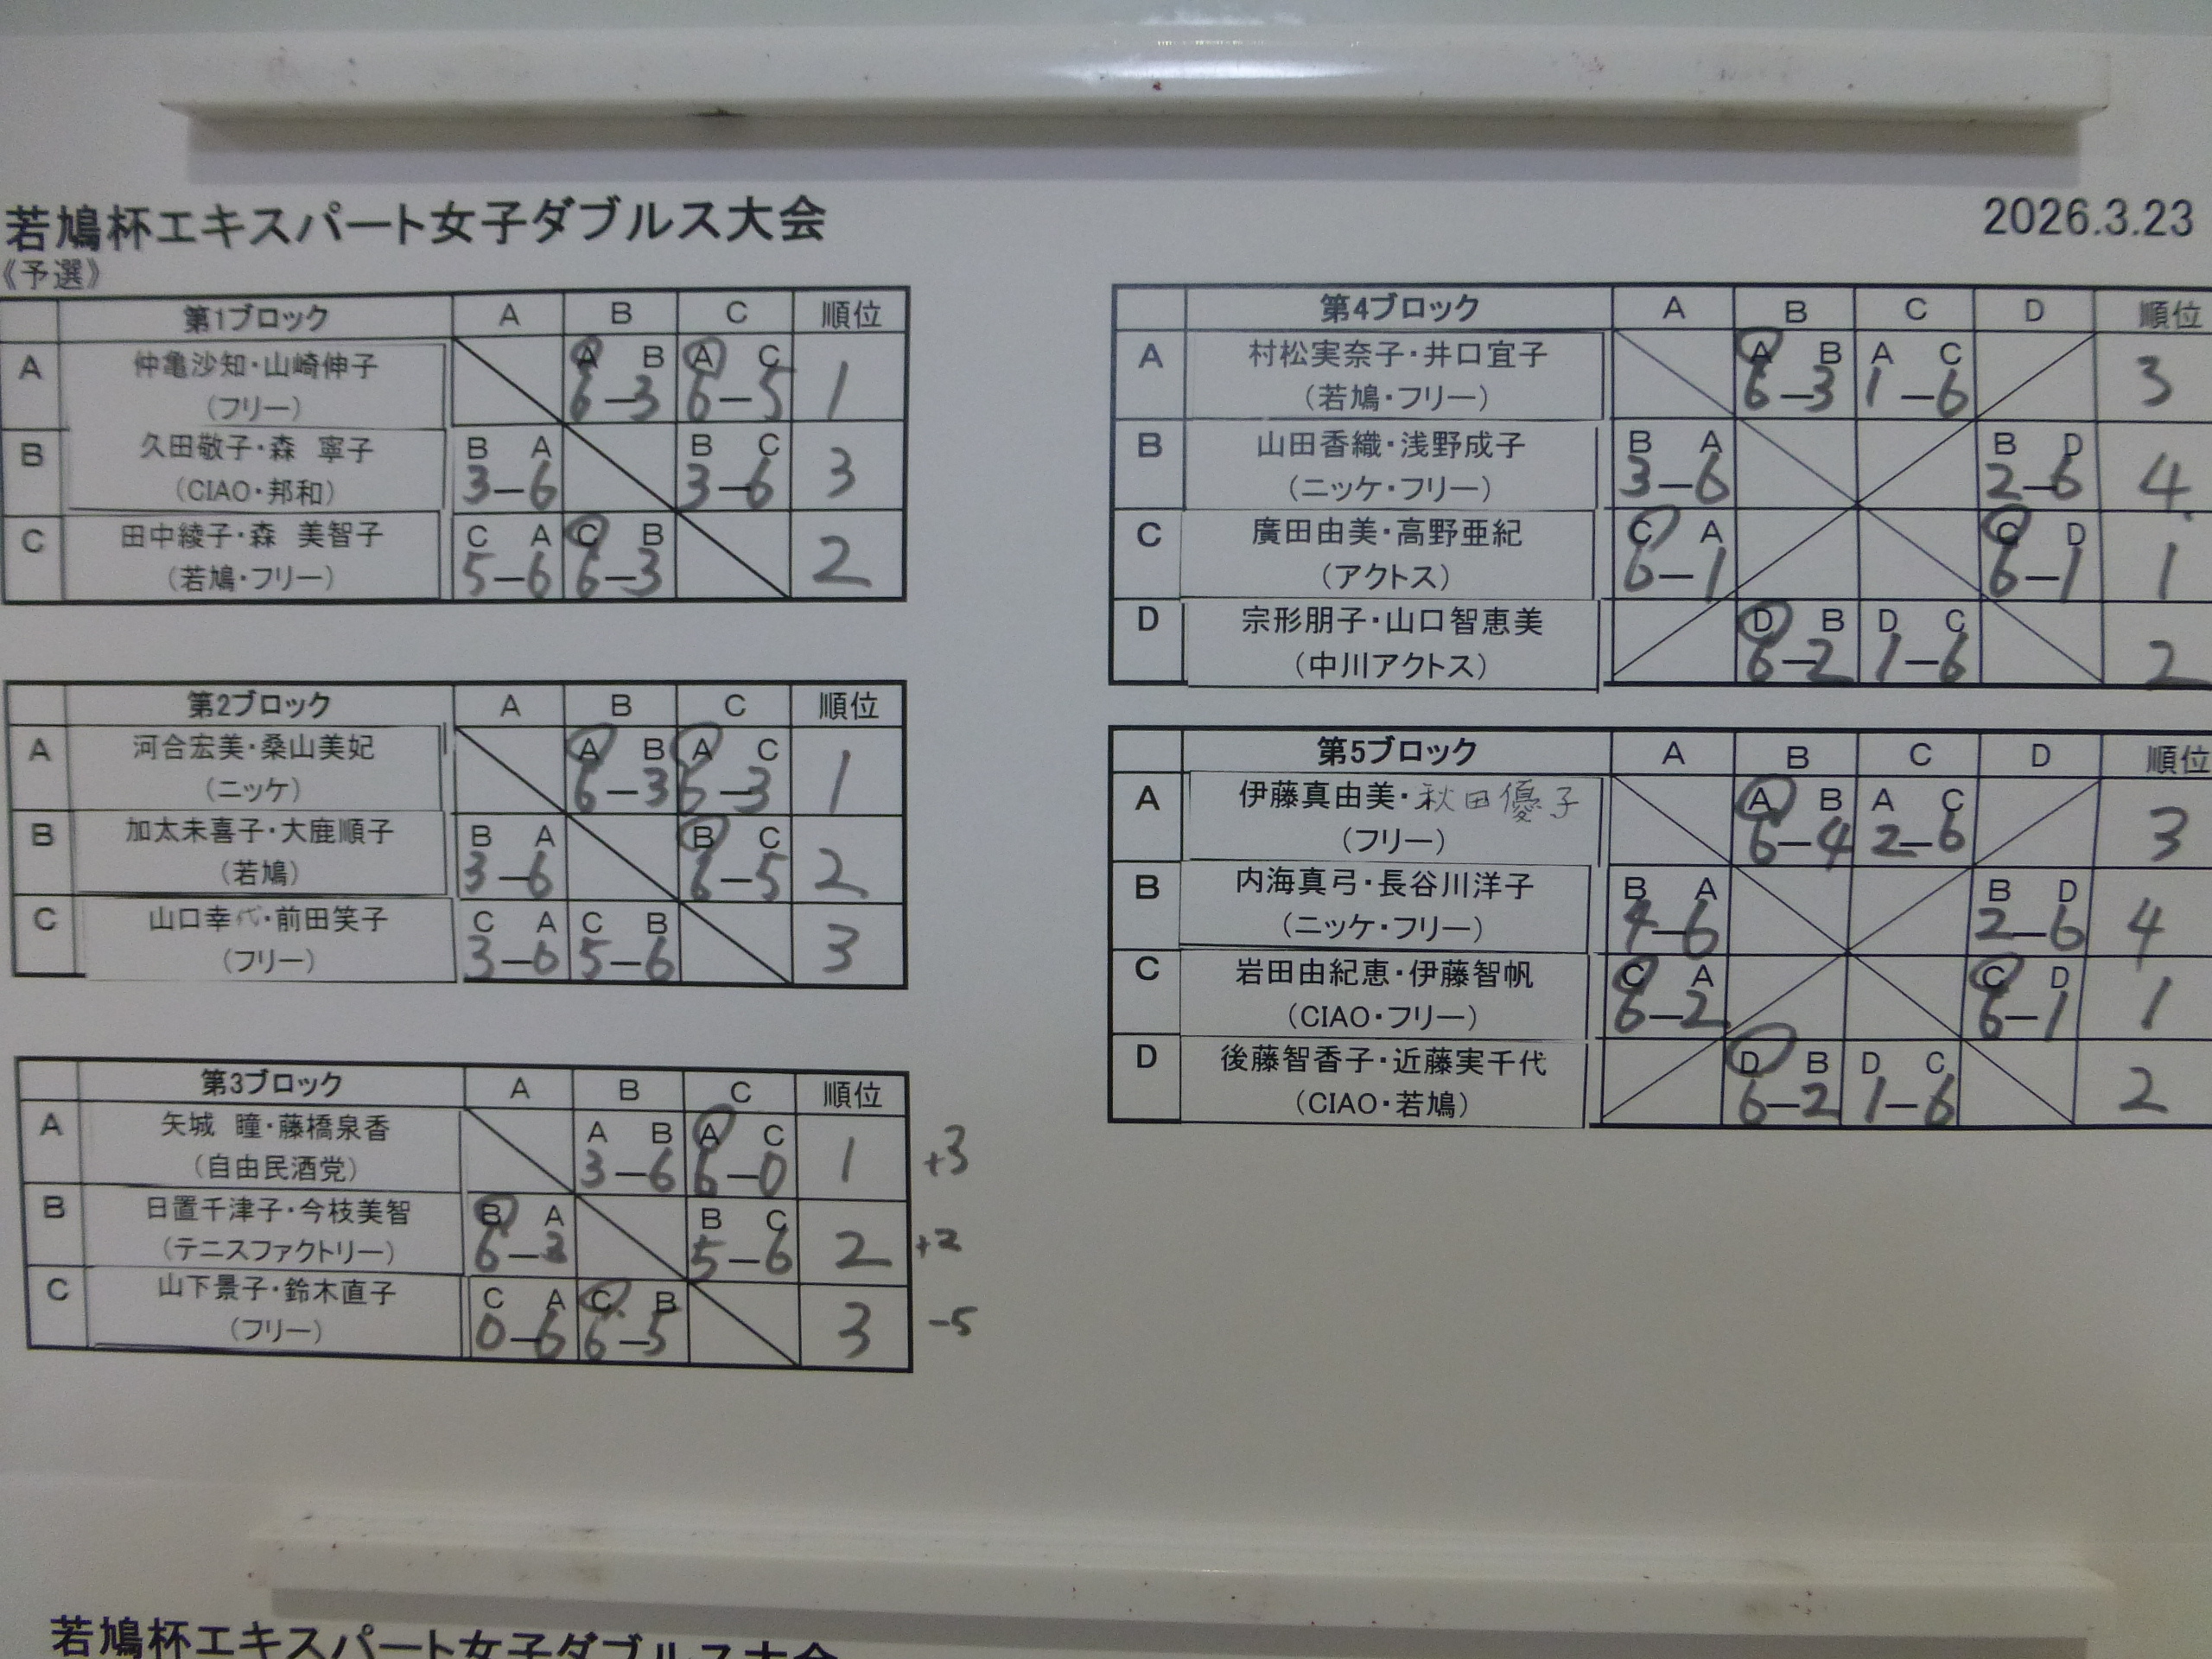 若鳩杯エキスパート女子ダブルス大会
2026.3.23
《予選》
第1ブロック A B C 順位
A 仲亀沙知・山崎伸子 A B A C
(フリー) 6-3 6-5 1
B 久田敬子・森 寧子 B A B C
(CIAO・邦和) 3-6 3-6 3
C 田中綾子・森 美智子 C A C B
(若鳩・フリー) 5-6 6-3 2
第2ブロック A B C 順位
A 河合宏美・桑山美妃 A B A C
(ニッケ) 6-3 6-3 1
B 加太未喜子・大鹿順子 B A B C
(若鳩) 3-6 6-5 2
C 山口幸代・前田笑子 C A C B
(フリー) 3-6 5-6 3
第3ブロック A B C 順位
A 矢城 瞳・藤橋泉香 A B A C
(自由民酒党) 3-6 6-0 1 +3
B 日置千津子・今枝美智 B A B C
(テニスファクトリー) 6-3 5-6 2 +2
C 山下景子・鈴木直子 C A C B
(フリー) 0-6 6-5 3 -5
第4ブロック A B C D 順位
A 村松実奈子・井口宜子 A B A C
(若鳩・フリー) 6-3 1-6 3
B 山田香織・浅野成子 B A B D
(ニッケ・フリー) 3-6 2-6 4
C 廣田由美・高野亜紀 C A C D
(アクトス) 6-1 6-1 1
D 宗形朋子・山口智恵美 D B D C
(中川アクトス) 6-2 1-6 2
第5ブロック A B C D 順位
A 伊藤真由美・秋田優子 A B A C
(フリー) 6-4 2-6 3
B 内海真弓・長谷川洋子 B A B D
(ニッケ・フリー) 4-6 2-6 4
C 岩田由紀恵・伊藤智帆 C A C D
(CIAO・フリー) 6-2 6-1 1
D 後藤智香子・近藤実千代 D B D C
(CIAO・若鳩) 6-2 1-6 2
若鳩杯エキスパート女子ダブルス大会